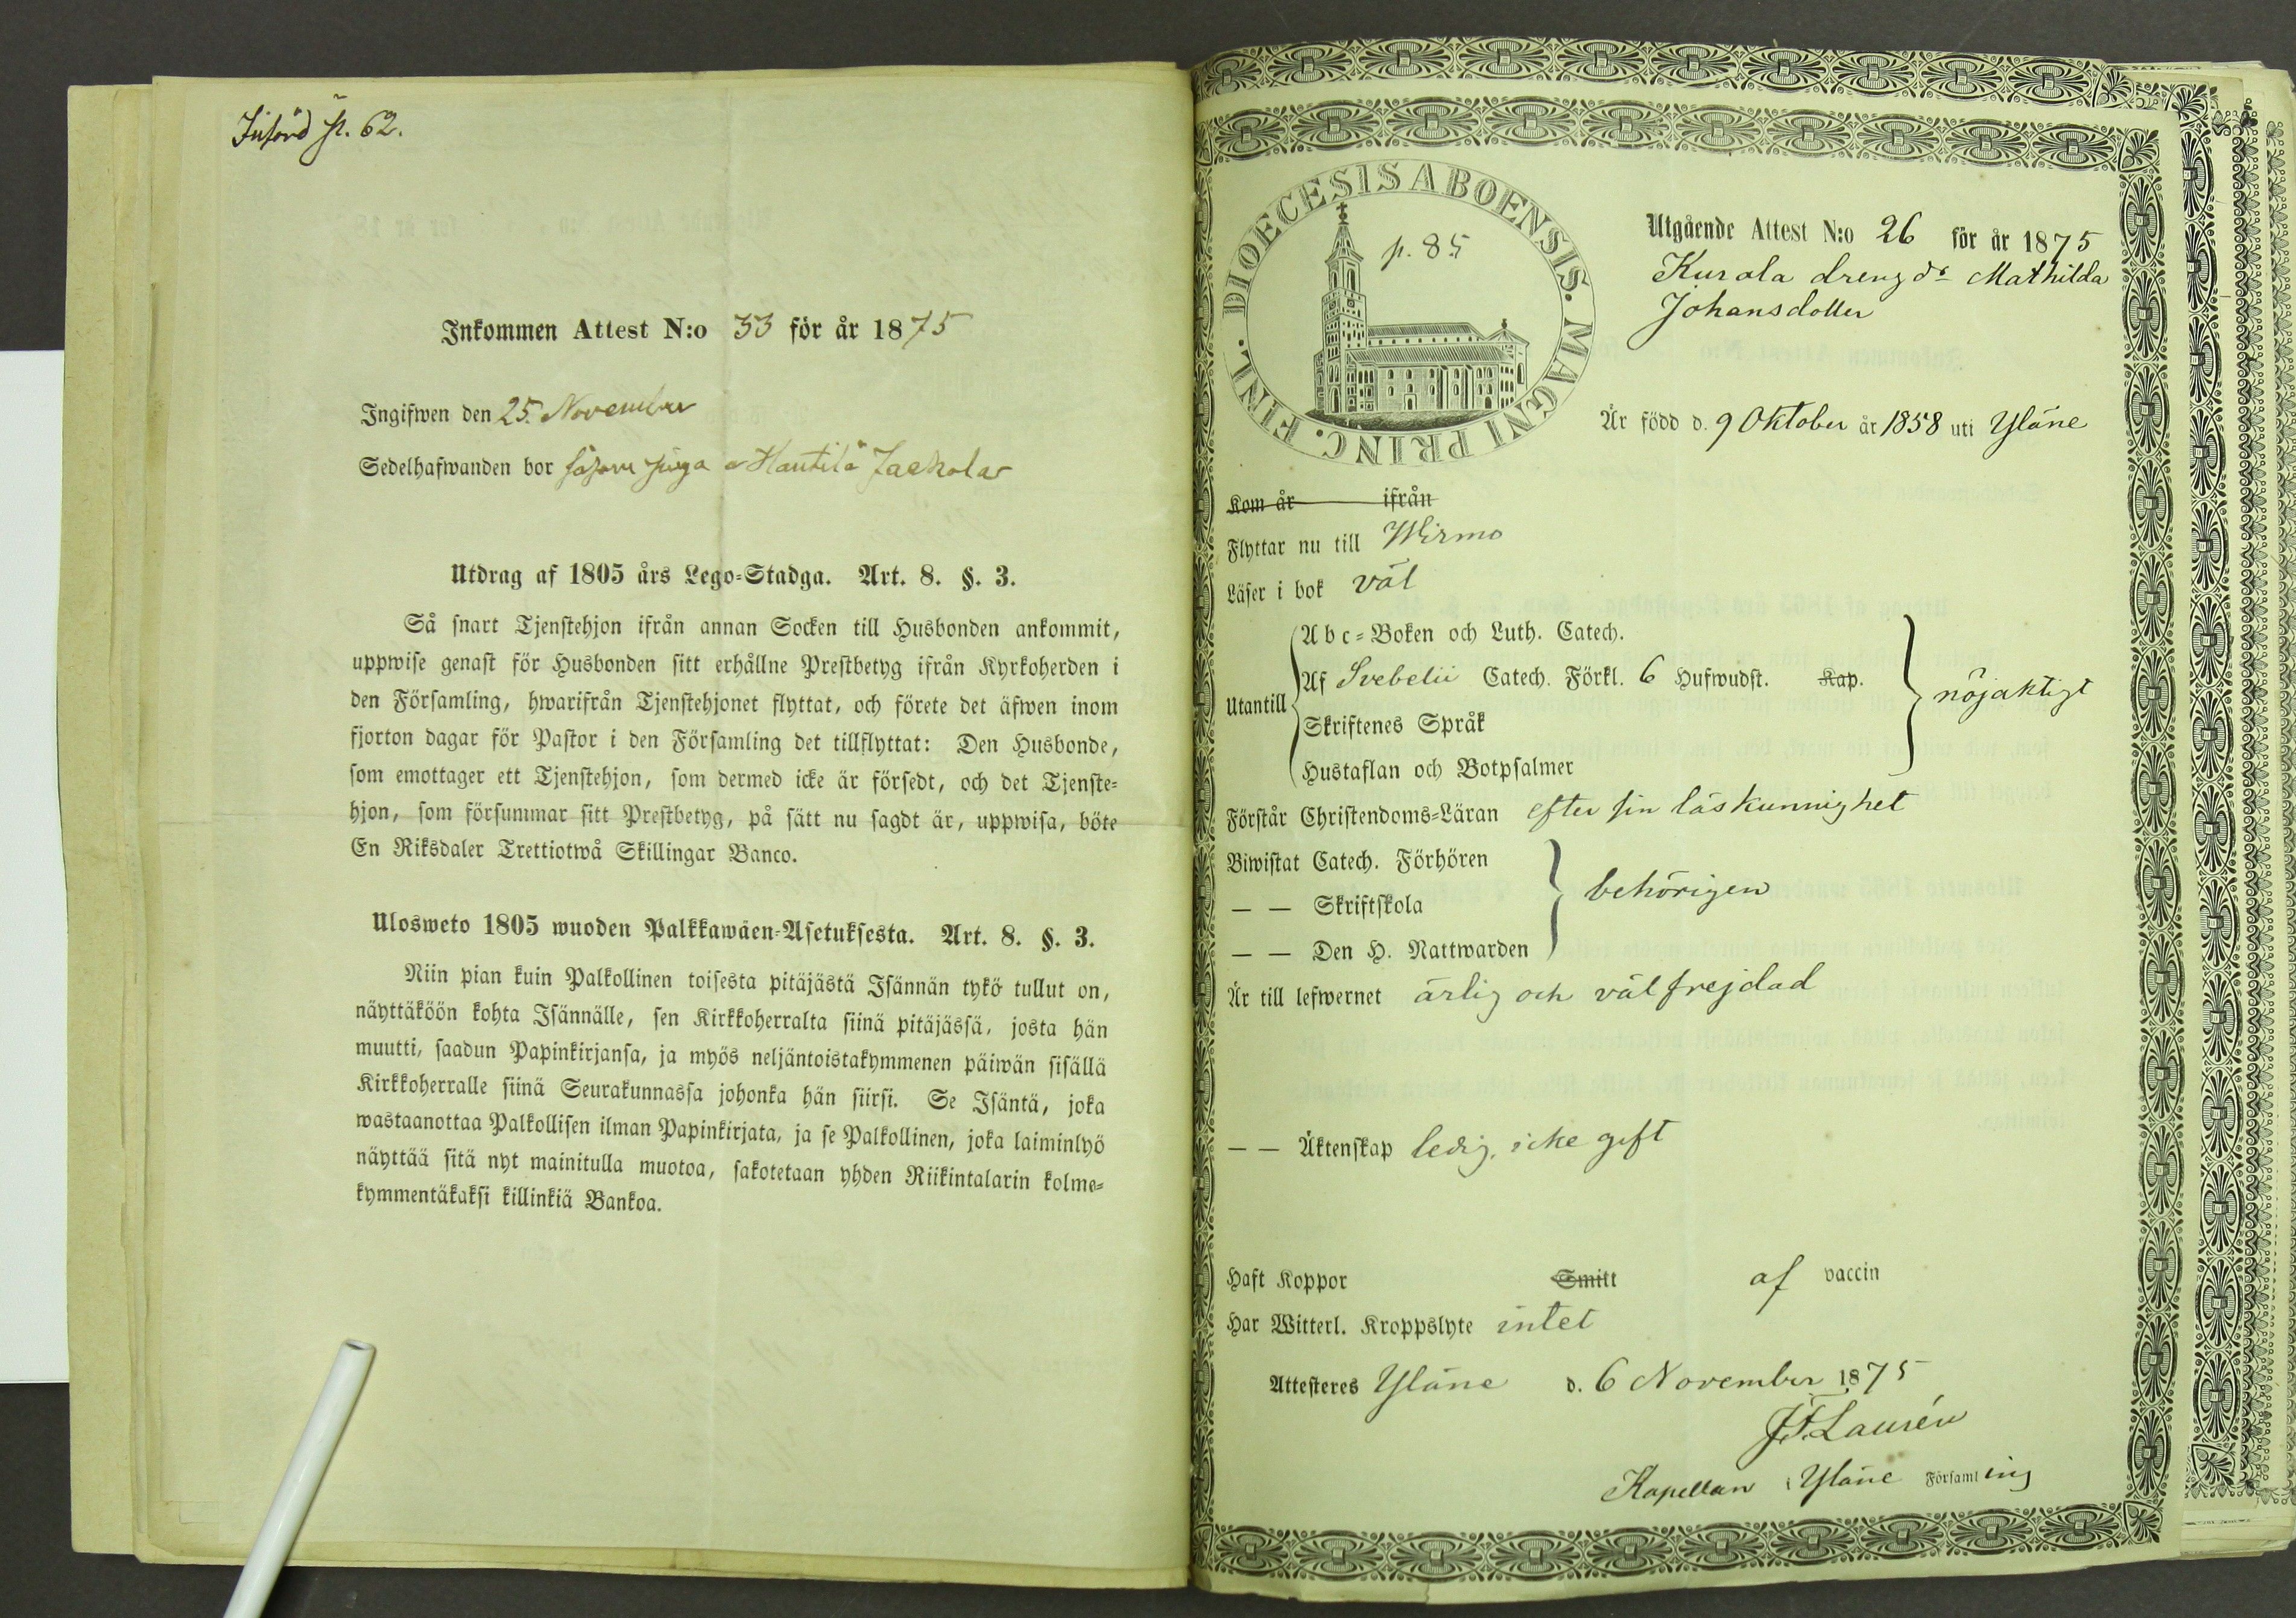 Införd p. 62.
Inkommen Attest N:o 33 för år 1875
Ingifwen den 25 November
Sedelhafwanden bor såsom piga a Hautila Jaakola
Utdrag af 1805 års Lego-Stadga. Art. 8. §. 3.
Så snart Tjenstehjon ifrån annan Socken till Husbonden ankommit,
uppwise genast för Husbonden sitt erhållne Prestbetyg ifrån Kyrkoherden i
den Församling, hwarifrån Tjenstehjonet flyttat, och förete det äfwen inom
fjorton dagar för Pastor i den Församling det tillflyttat: Den Husbonde,
som emottager ett Tjenstehjon, som dermed icke är försedt, och det Tjenste-
hjon, som försummar sitt Prestbetyg, på sätt nu sagdt är, uppwisa, böte
En Riksdaler Trettiotwå Skillingar Banco.
Ulosweto 1805 wuoden Palkkawäen-Asetuksesta. Art. 8. §. 3.
Niin pian kuin Palkollinen toisesta pitäjästä Isännän tykö tullut on,
näyttäköön kohta Isännälle, sen Kirkkoherralta siinä pitäjässä, josta hän
muutti, saadun Papinkirjansa, ja myös neljäntoistakymmenen päiwän sisällä
Kirkkoherralle siinä Seurakunnassa johonka hän siirsi. Se Isäntä, joka
wastaanottaa Palkollisen ilman Papinkirjata, ja se Palkollinen, joka laiminlyö
näyttää sitä nyt mainitulla muotoa, sakotetaan yhden Riikintalarin kolme-
kymmentäkaksi killinkiä Bankoa.
DIOECESIS ABOENSIS. MAGNI PRINC. FINL.
p. 85
Utgående Attest N:o 26 för år 1875
Kurala drengdr Mathilda
Johansdotter
Är född d. 9 Oktober år 1858 uti Yläne
Kom år ifrån
Flyttar nu till Wirmo
Läser i bok väl
Utantill
Abc-Boken och Luth. Catech.
Af Svebelii Catech. Förkl. 6 Hufwudst. Kap.
Skriftenes Språk
Hustaflan och Botpsalmer
nöjaktigt
Förstår Christendoms-Läran efter sin läskunnighet
Biwistat Catech. Förhören
— — Skriftskola
— — Den H. Nattwarden
behörigen
Är till lefwernet ärlig och välfrejdad
— — Äktenskap ledig, icke gift
Haft Koppor Smitt af vaccin
Har Witterl. Kroppslyte intet
Attesteres Yläne d. 6 November 1875
J.F. Laurén
Kapellan i Yläne Församling